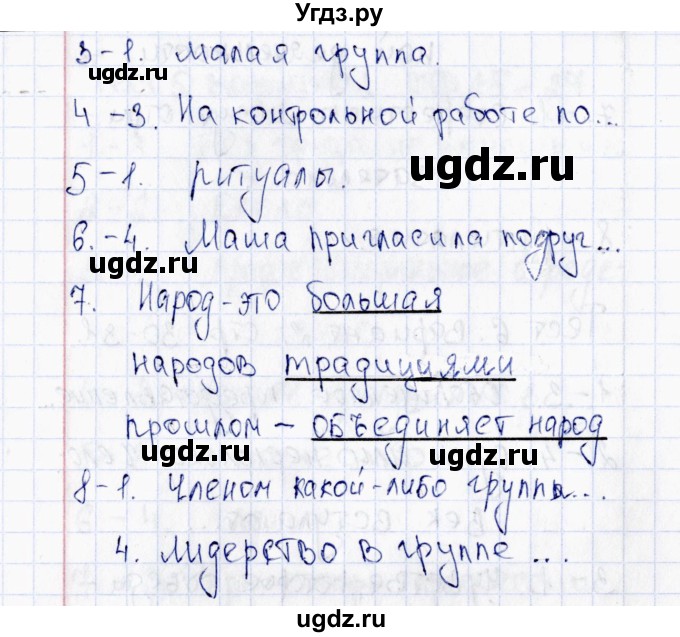 Угдз.ру
3-1. Малая группа.
ugdz.ru
4-3. На контрольной работе по...
ugdz.ru
5-1. ритуалы.
6.-4. Маша пригласила подруг...
ugdz.ru
7. Народ-это большая
народов традициями
прошлом - объединяет народ
ugdz.ru ugdz.ru
8-1. Членом какой-либо группы...
4. лидерство в группе ...
ugdz.ru